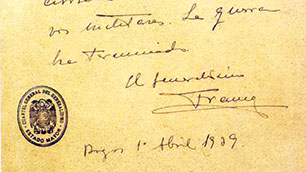 vos militares. La guerra
ha terminado.
El Generalísimo
Franco
Burgos 1º Abril 1939
CUARTEL GENERAL DEL GENERALISIMO
ESTADO MAYOR